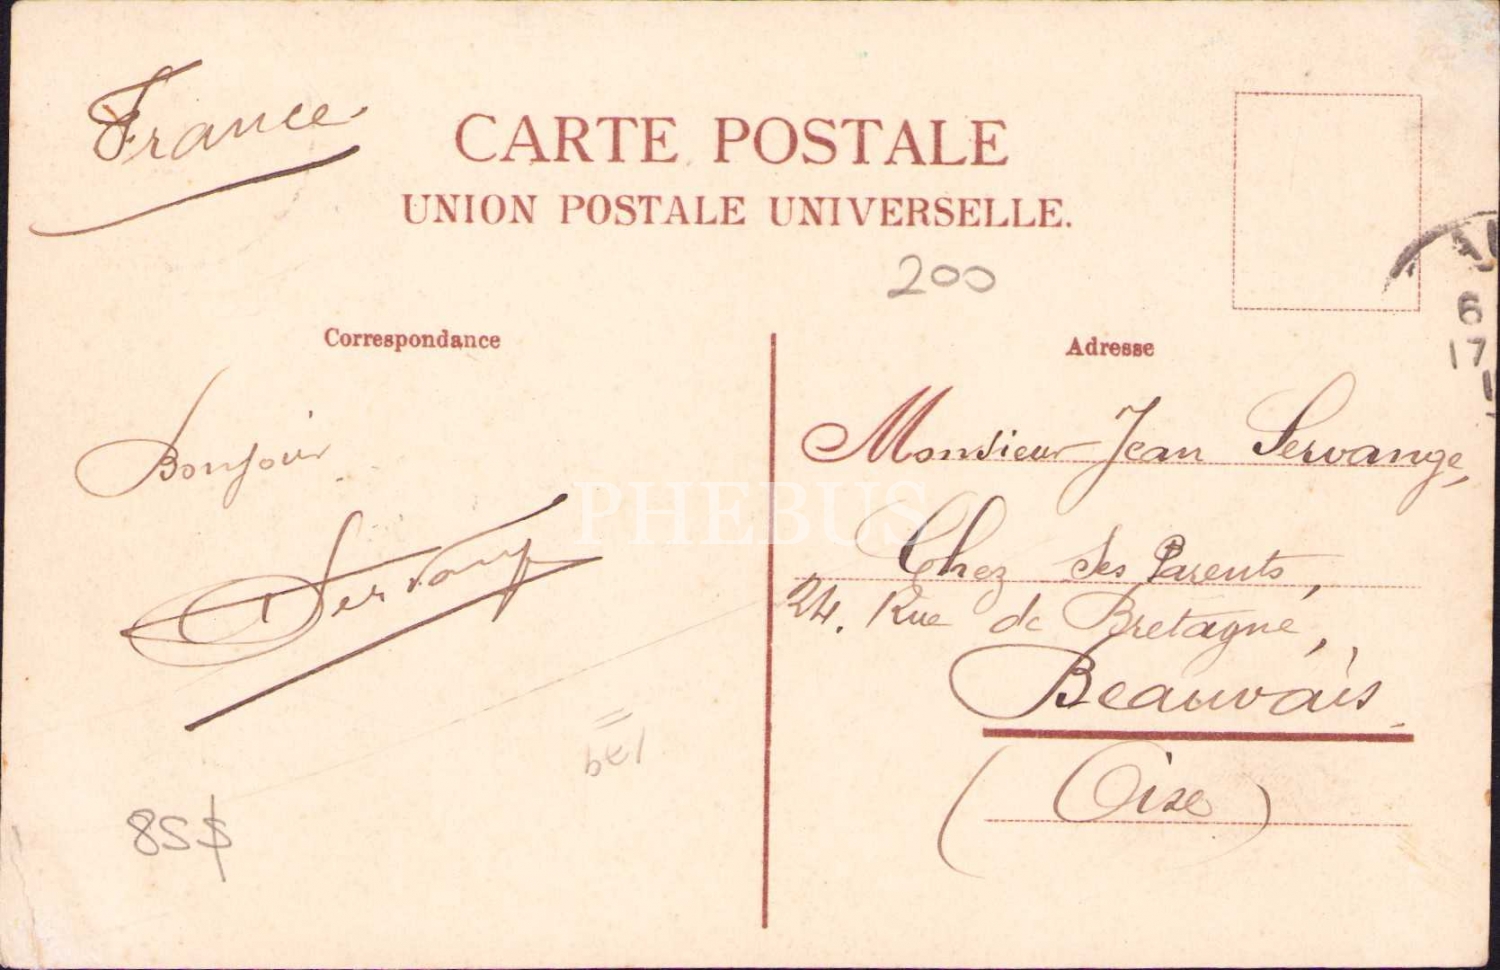 France
CARTE POSTALE
UNION POSTALE UNIVERSELLE.
200
Correspondance
Adresse
6
17
Bonjour
Servange
Monsieur Jean Servange,
Chez Ses Parents,
24. Rue de Bretagne,
Beauvais
(Oise)
PHEBUS
85$